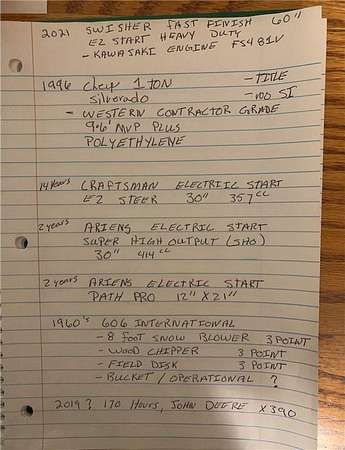 2021 SWISHER FAST FINISH 60"
EZ START HEAVY DUTY
- KAWASAKI ENGINE FS481V
1996 Chev 1 TON - TITLE
Silverado - NO SI
- WESTERN CONTRACTOR GRADE
9'6" MVP PLUS
POLYETHYLENE
14 years CRAFTSMAN ELECTRIC START
EZ STEER 30" 357cc
2 years ARIENS ELECTRIC START
SUPER HIGH OUTPUT (SHO)
30" 414cc
2 years ARIENS ELECTRIC START
PATH PRO 12" X 21"
1960's 606 INTERNATIONAL
- 8 FOOT SNOW BLOWER 3 POINT
- WOOD CHIPPER 3 POINT
- FIELD DISK 3 POINT
- BUCKET / OPERATIONAL ?
2019? 170 HOURS, JOHN DEERE X390